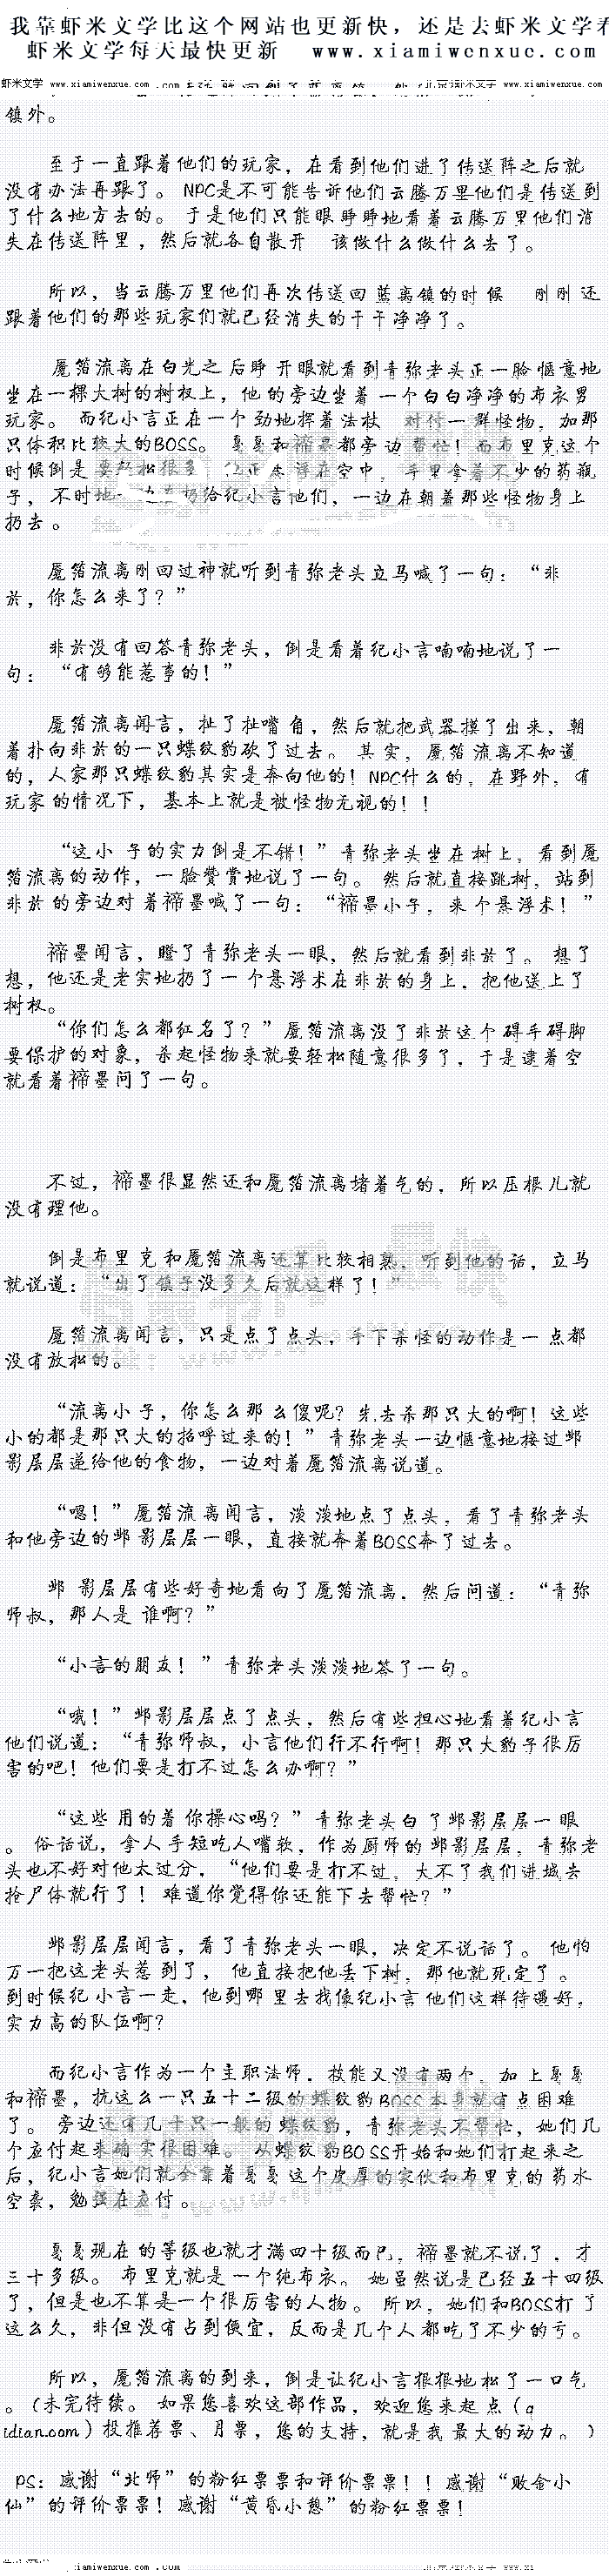 我靠虾米文学比这个网站也更新快，还是去虾米文学看
虾米文学每天最快更新 www.xiamiwenxue.com
虾米文学 www.xiamiwenxue.com
镇外。
至于一直跟着他们的玩家，在看到他们进了传送阵之后就
没有办法再跟了。NPC是不可能告诉他们云腾万里他们是传送到
了什么地方去的。于是他们只能眼睁睁地看着云腾万里他们消
失在传送阵里，然后就各自散开 该做什么做什么去了。
所以，当云腾万里他们再次传送回蓝离镇的时候 刚刚还
跟着他们的那些玩家们就已经消失的干干净净了。
魇箔流离在白光之后睁开眼就看到青弥老头正一脸惬意地
坐在一棵大树的树杈上，他的旁边坐着一个白白净净的布衣男
玩家。而纪小言正在一个劲地挥着法杖 对付一群怪物，加那
只体积比较大的BOSS。戛戛和褅墨都旁边帮忙！而布里克这个
时候倒是要轻松很多 正悬浮在空中，手里拿着不少的药瓶
子，不时地一边扔给纪小言他们，一边在朝着那些怪物身上
扔去。
魇箔流离刚回过神就听到青弥老头立马喊了一句：“非
於，你怎么来了？”
非於没有回答青弥老头，倒是看着纪小言喃喃地说了一
句：“有够能惹事的！”
魇箔流离闻言，扯了扯嘴角，然后就把武器摸了出来，朝
着扑向非於的一只蝶纹豹砍了过去。其实，魇箔流离不知道
的，人家那只蝶纹豹其实是奔向他的！NPC什么的，在野外，有
玩家的情况下，基本上就是被怪物无视的！！
“这小子的实力倒是不错！”青弥老头坐在树上，看到魇
箔流离的动作，一脸赞赏地说了一句。然后就直接跳树，站到
非於的旁边对着褅墨喊了一句：“褅墨小子，来个悬浮术！”
褅墨闻言，瞪了青弥老头一眼，然后就看到非於了。想了
想，他还是老实地扔了一个悬浮术在非於的身上，把他送上了
树杈。
“你们怎么都红名了？”魇箔流离没了非於这个碍手碍脚
要保护的对象，杀起怪物来就要轻松随意很多了，于是逮着空
就看着褅墨问了一句。
不过，褅墨很显然还和魇箔流离堵着气的，所以压根儿就
没有理他。
倒是布里克和魇箔流离还算比较相熟，听到他的话，立马
就说道：“出了镇子没多久后就这样了！”
魇箔流离闻言，只是点了点头，手下杀怪的动作是一点都
没有放松的。
“流离小子，你怎么那么傻呢？先去杀那只大的啊！这些
小的都是那只大的招呼过来的！”青弥老头一边惬意地接过邺
影层层递给他的食物，一边对着魇箔流离说道。
“嗯！”魇箔流离闻言，淡淡地点了点头，看了青弥老头
和他旁边的邺影层层一眼，直接就奔着BOSS奔了过去。
邺影层层有些好奇地看向了魇箔流离，然后问道：“青弥
师叔，那人是谁啊？”
“小言的朋友！”青弥老头淡淡地答了一句。
“哦！”邺影层层点了点头，然后有些担心地看着纪小言
他们说道：“青弥师叔，小言他们行不行啊！那只大豹子很厉
害的吧！他们要是打不过怎么办啊？”
“这些用的着你操心吗？”青弥老头白了邺影层层一眼
。俗话说，拿人手短吃人嘴软，作为厨师的邺影层层，青弥老
头也不好对他太过分，“他们要是打不过，大不了我们进城去
捡尸体就行了！难道你觉得你还能下去帮忙？”
邺影层层闻言，看了青弥老头一眼，决定不说话了。他怕
万一把这老头惹到了，他直接把他丢下树，那他就死定了。
到时候纪小言一走，他到哪里去找像纪小言他们这样待遇好，
实力高的队伍啊？
而纪小言作为一个主职法师，技能又没有两个，加上戛戛
和褅墨，抗这么一只五十二级的蝶纹豹BOSS本身就有点困难
了。旁边还有几十只一般的蝶纹豹，青弥老头不帮忙，她们几
个应付起来确实很困难。从蝶纹豹BOSS开始和她们打起来之
后，纪小言她们就全靠着戛戛这个皮厚的家伙和布里克的药水
空袭，勉强在应付。
戛戛现在的等级也就才满四十级而已，褅墨就不说了，才
三十多级。布里克就是一个纯布衣。她虽然说是已经五十四级
了，但是也不算是一个很厉害的人物。所以，她们和BOSS打了
这么久，非但没有占到便宜，反而是几个人都吃了不少的亏。
所以，魇箔流离的到来，倒是让纪小言狠狠地松了一口气
。（未完待续。如果您喜欢这部作品，欢迎您来起点（q
idian.com）投推荐票、月票，您的支持，就是我最大的动力。）
PS：感谢“北师”的粉红票票和评价票票！！感谢“败金小
仙”的评价票票！感谢“黄昏小憩”的粉红票票！